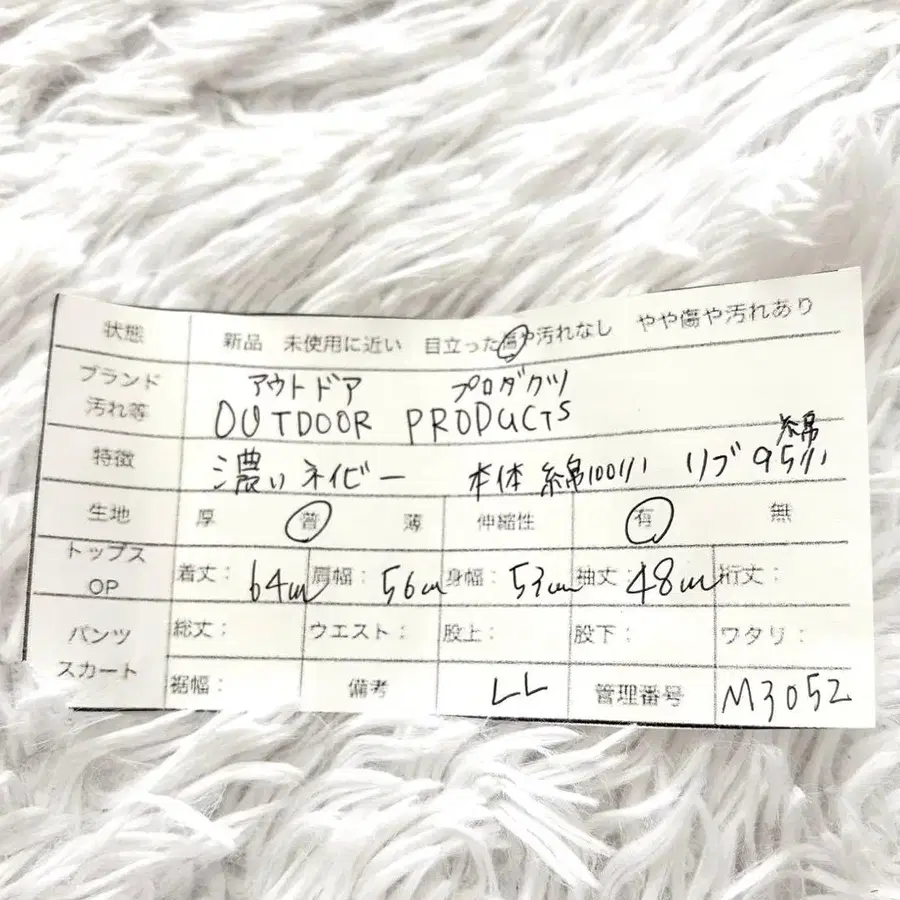 状態 新品 未使用に近い 目立った傷や汚れなし やや傷や汚れあり
ブランド アウトドア プロダクツ
汚れ等 OUTDOOR PRODUCTS
特徴 濃いネイビー 本体 綿100% リブ 綿95%
生地 厚 普 薄 伸縮性 有 無
トップス
OP 着丈: 64cm 肩幅: 56cm 身幅: 53cm 袖丈: 48cm 裄丈:
パンツ 総丈: ウエスト: 股上: 股下: ワタリ:
スカート 裾幅: 備考 LL 管理番号 M3052